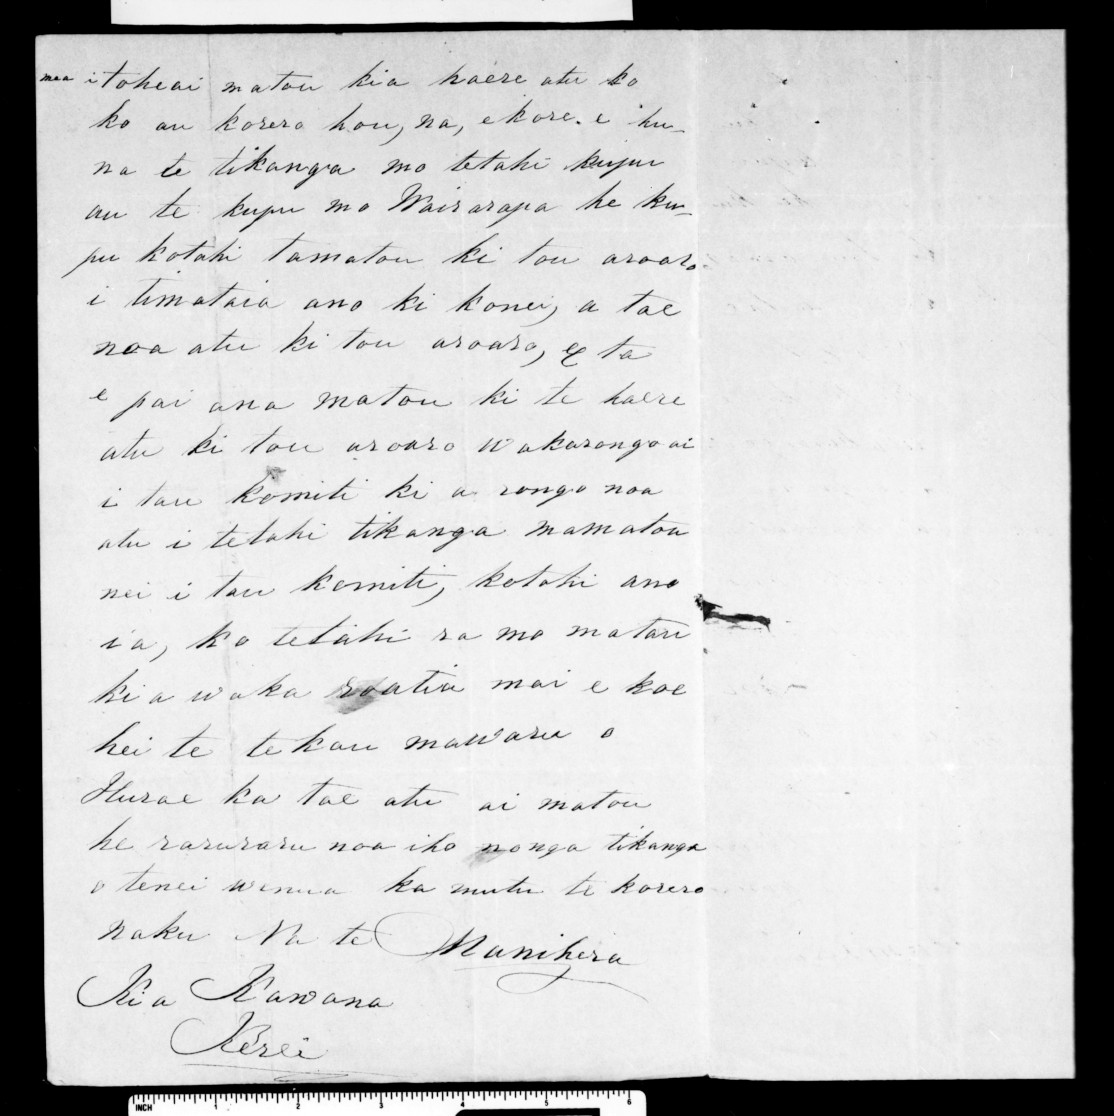 maa i toheai matou kia haere atu ko
ko au korero hou, na, ekore. e hu-
na te tikanga mo tetahi kupu
au te kupu mo Wairarapa he ku-
pu kotahi tamatou ki tou aroaro
i timataia ano ki konei, a tae
noa atu ki tou aroaro, e ta
e pai ana matou ki te haere
atu ki tou aroaro wakarongo ai
i tau komiti ki a rongo noa
atu i tetahi tikanga mamatou
nei i tau komiti, kotahi ano
ia, ko tetahi ra mo matau
ki a waka roatia mai e koe
hei te tekau mawaru o
Hurae ka tae atu ai matou
he raruraru noa iho nonga tikanga
o tenei wenua ka mutu te korero
naku Na te Manihera
Kia Kawana
Kerei
INCH 1 2 3 4 5 6